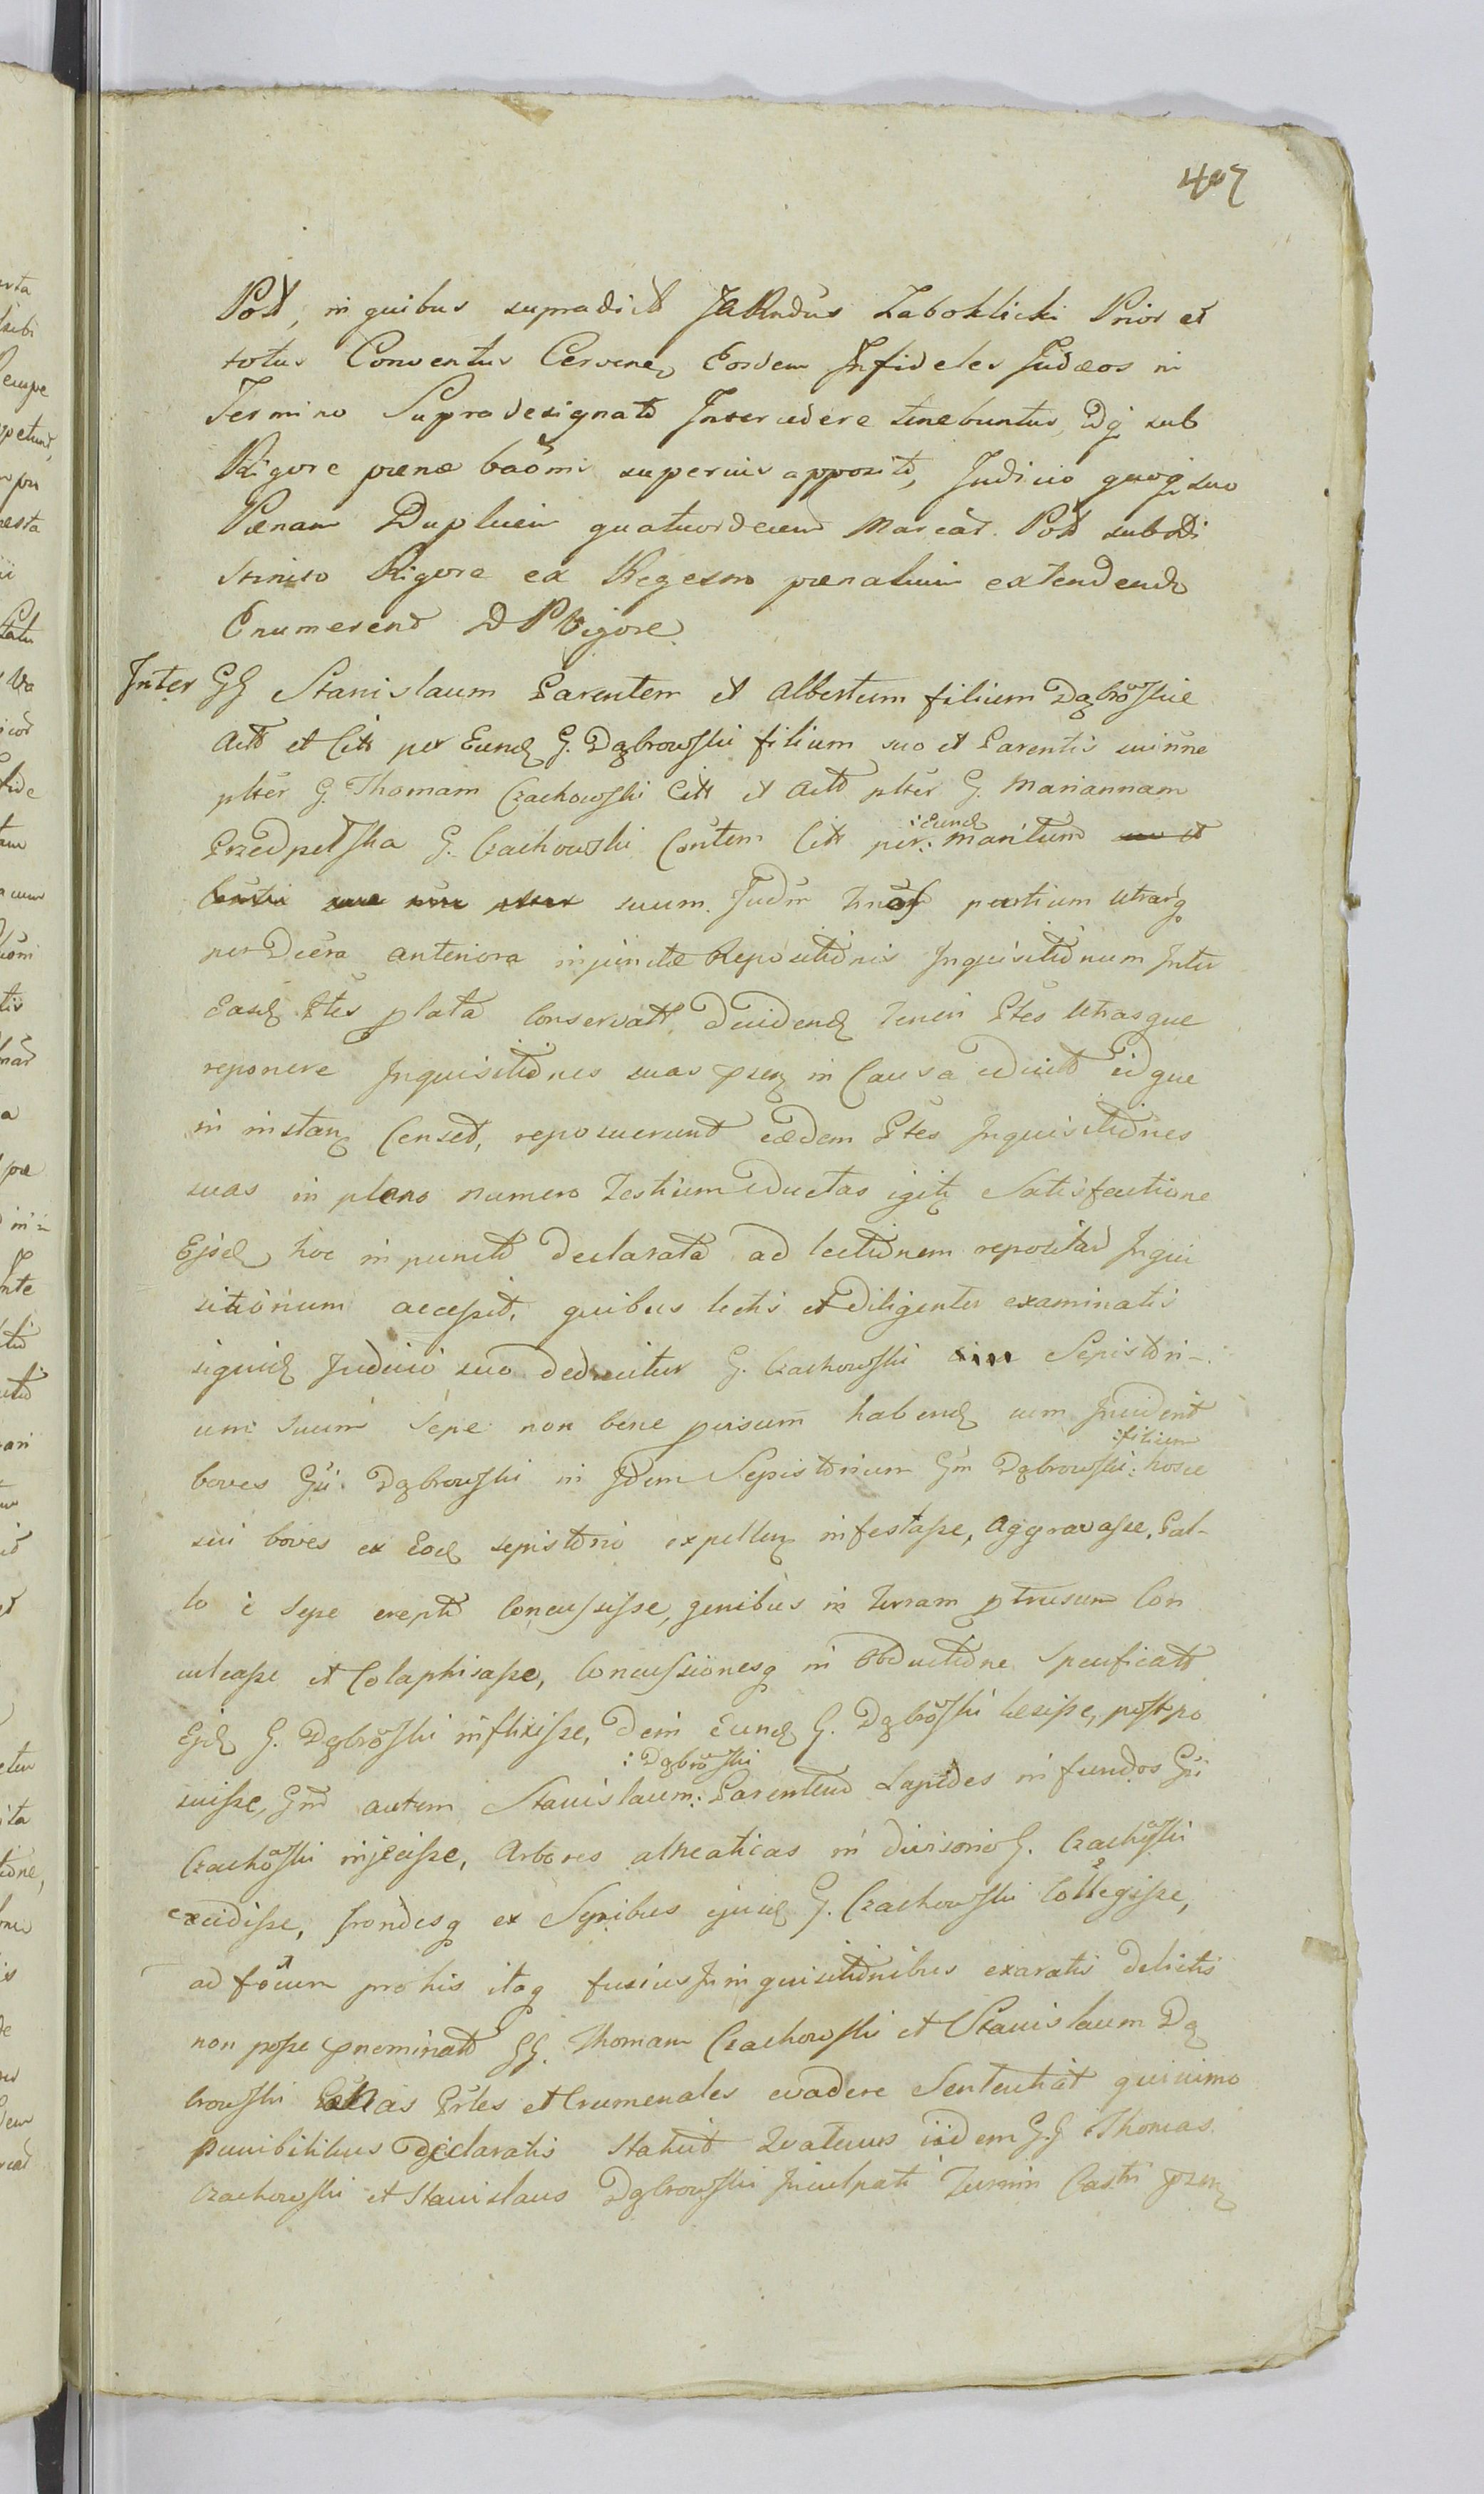 407
Pold, in quibus supradictt JARndus Zaboklicki Prior et
totus Conventus Cervenen Eosdem Infideles Judæos in
Termino Supradesignatto Intercedere tenebuntur, Idq sub
Rigore pænæ baõmis superius appositt, Judicio quoq suo
Pænam Duplicem quatuordecim Marcar. Pold sub di
stricto Rigore ex Regestro pænalium extendend
Enumerent D P Vigore
Inter GG Stanislaum Parentem et Albertum filium Dąbrowskie
Actt et Citt per Eund G. Dąbrowski filium suo et Parentis sui nne
plter G. Thomam Czachowski Citt et Actt plter G. Mariannam
Przedpełska G. Czachowski Contem Citt per :Eund: maritum
suum. Judm partium utrarq
per Dcta anteriora injunctæ Repositionis Inquisitionum Inter
Easd Ptes plata Conservatt, Decidend Teneri Ptes Utrasque
reponere Inquisitiones suas psen in Causa eductt idque
in instan Censet, reposuerunt eædem Ptes Inquisitiones
suas in pleno numero Testium eductas igitr Satisfactione
Ejsd hoc in punctto declarata ad lectionem repositar Inqui
sitionum accessit, quibus lectis et diligenter examinatis
siquid Judicio suo deducitur G. Czachowski Sepistori-
um suum sepe non bene pvisum habend cum Inciderit
boves Gsi Dąbrowski in Idem Sepistorium Gm Dąbrowski :filium: hosce
sui boves ex Eod sepistorio expellen infestasse, Aggravasse, Pal-
lo è sepe erepto Concussisse, genibus in Terram ptrusum Con
culcasse et Colaphisasse, Concussionesq in Obductione Specificatt
Ejd G. Dąbrowski inflixisse, Dein Eund G. Dąbrowski læsisse, postpo
suisse, Gm autem Stanislaum :Dąbrowski: Parentem Lapides in fundos Gsi
Czachowski injecisse, Arbores alneaticas in divisorio G. Czachowski
excidisse, frondesq ex Sepibus ejusd G. Czachowski Collegisse,
ad focum pro his itaq fusius in inquisitionibus exaratis delictis
non posse pnominatt GG. Thomam Czachowski et Stanislaum Dą
browski Pænas Prles et Crumenales evadere Sententiat quinimo
punibilibus Declaratis Statuit Quatenus iidem GG Thomas
Czachowski et Stanislaus Dąbrowski Inculpati Turrim Castri psen